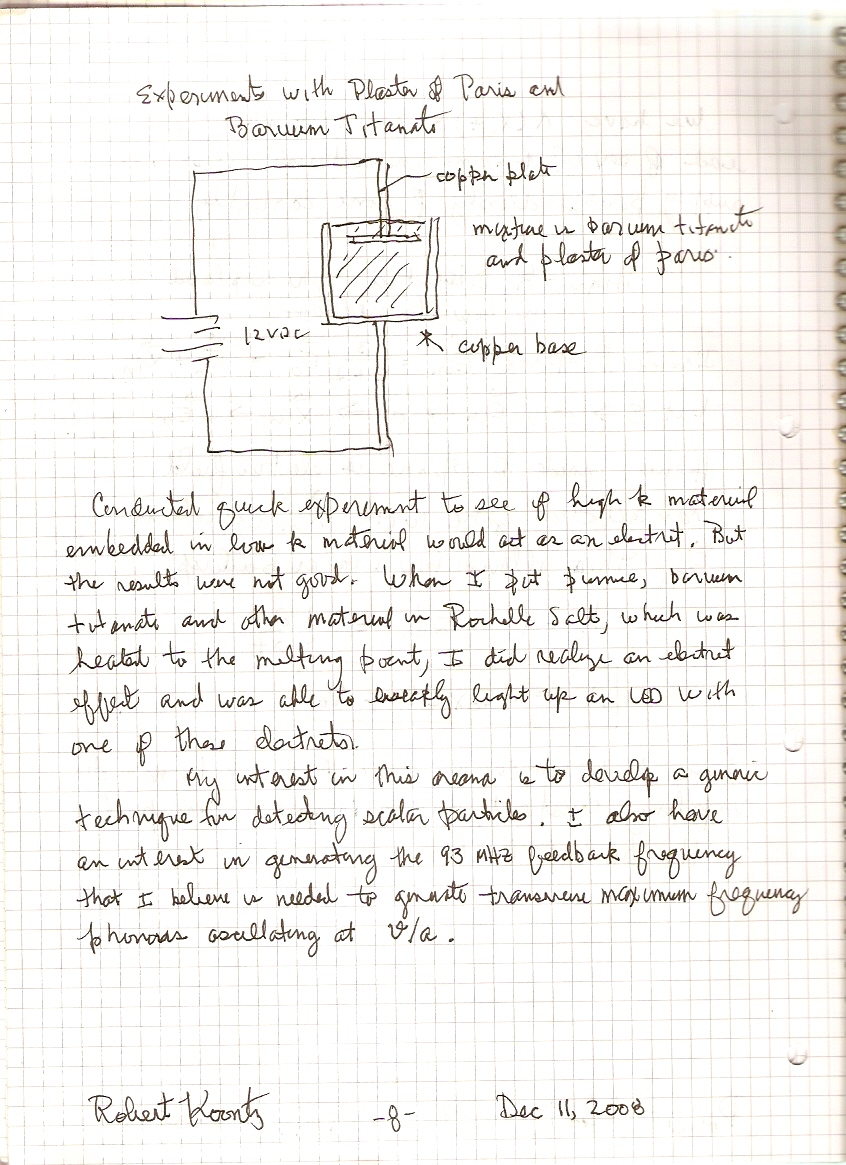 Experiments with Plaster of Paris and
Barium Titanate
copper plate
mixture is barium titanate
and plaster of paris.
12VDC
* copper base
Conducted quick experiment to see if high k material
embedded in low k material would act as an electret. But
the results were not good. When I put pumice, barium
titanate and other material in Rochelle Salt, which was
heated to the melting point, I did realize an electret
effect and was able to weakly light up an LED with
one of these electrets.
My interest in this arena is to develop a generic
technique for detecting scalar particles. I also have
an interest in generating the 93 MHZ feedback frequency
that I believe is needed to generate transverse maximum frequency
phonons oscillating at v/a.
Robert Koontz
-8-
Dec 11, 2008